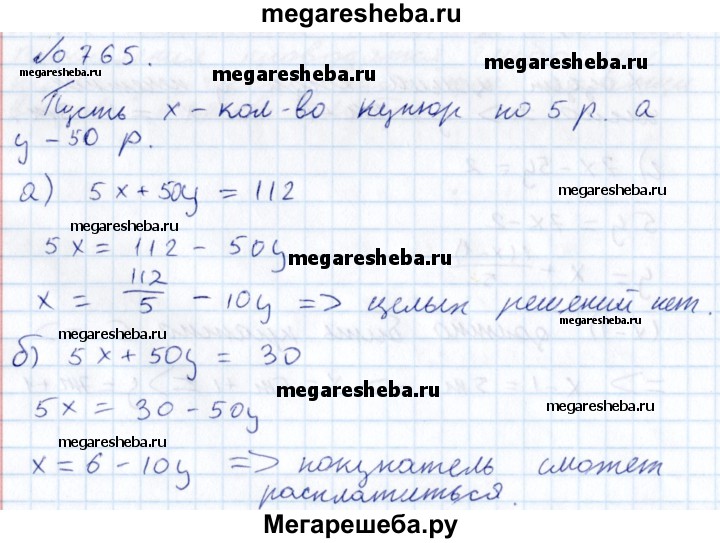 megaresheba.ru
№ 765.
megaresheba.ru
megaresheba.ru
megaresheba.ru
Пусть x – кол-во купюр по 5 р. а
y – 50 р.
а) 5x + 50y = 112
megaresheba.ru
megaresheba.ru
5x = 112 - 50y
megaresheba.ru
x = 112/5 - 10y => целых решений нет.
megaresheba.ru
megaresheba.ru
б) 5x + 50y = 30
megaresheba.ru
5x = 30 - 50y
megaresheba.ru
megaresheba.ru
x = 6 - 10y => покупатель сможет
расплатиться.
Мегарешеба.ру